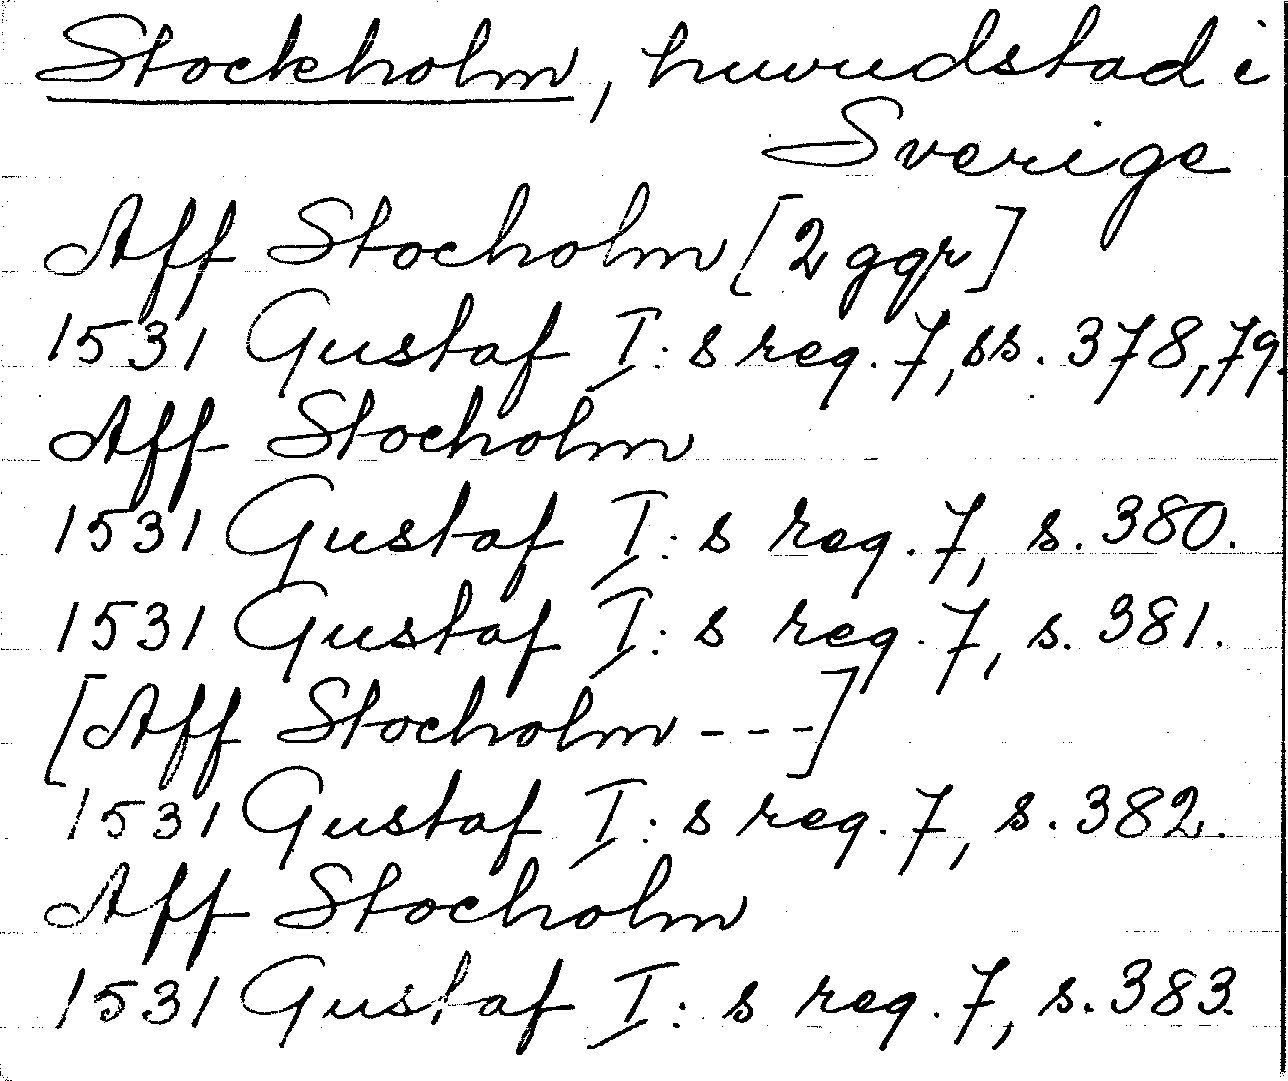 Stockholm, huvudstad i
Sverige
Aff Stocholm [2 ggr]
1531 Gustaf I:s reg. 7, ss. 378, 79.
Aff Stocholm
1531 Gustaf I:s reg. 7, s. 380.
1531 Gustaf I:s reg. 7, s. 381.
[Aff Stocholm ---]
1531 Gustaf I:s reg. 7, s. 382.
Aff Stocholm
1531 Gustaf I:s reg. 7, s. 383.